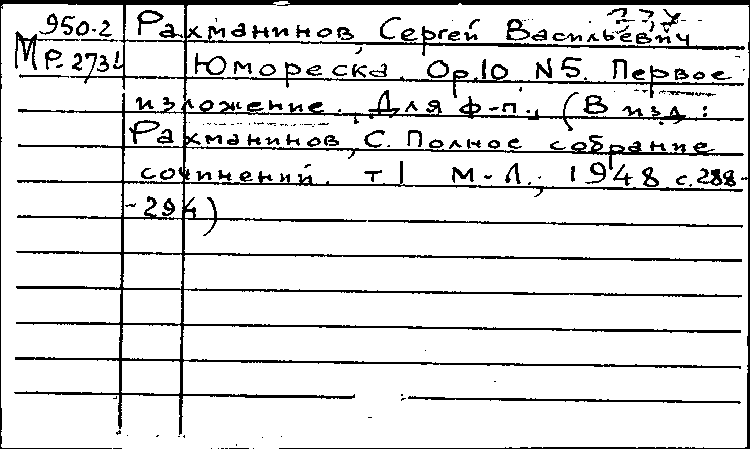 950-2 Рахманинов, Сергей Васильевич
М Р-273 Юмореска. Ор.10 N5. Первое
изложение. Для ф-п., (В изд:
Рахманинов, С. Полное собрание
сочинений. т.1 М-Л., 1948 с.288-
-294)